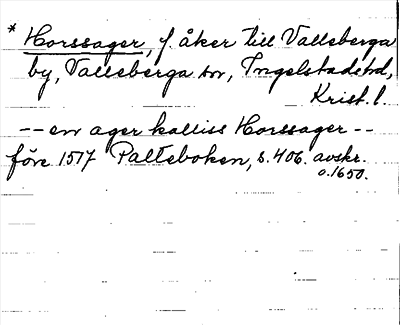 * Horssager, f. åker till Valleberga
by, Valleberga sn, Ingelstads hd,
Krist. l.
-- en ager kalliss Horssager --
före 1517 Palteboken, s. 406. avskr.
o. 1650.